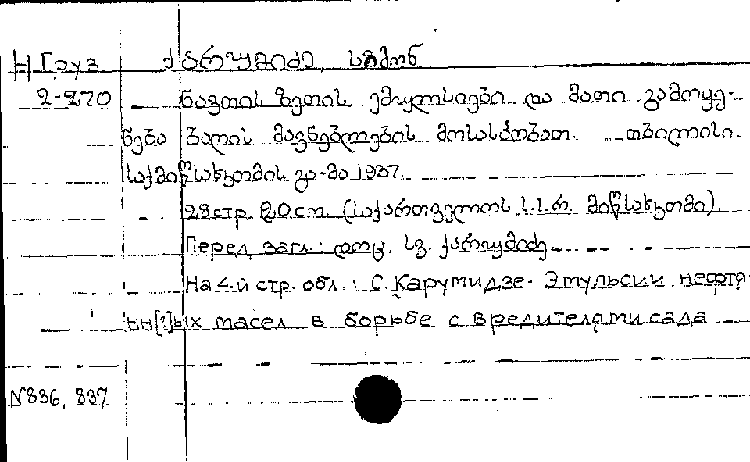 Н Груз ქარუმიძე, სიმონ
2-270 ნავთის ზეთის ემულსიები და მათი გამოყე-
ნება ბაღის მავნებლების მოსასპობათ. თბილისი.
საქმიწსახკომის გა-მა 1937.
28стр. 20см. (საქართველოს ს.ს.რ. მიწსახკომი)
Перед загл.: დოც. სვ. ქარუმიძე
На 4-й стр. обл.: С. Карумидзе- Эмульсии нефтя-
нн[!]ых масел в борьбе с вредителями сада
N836, 837